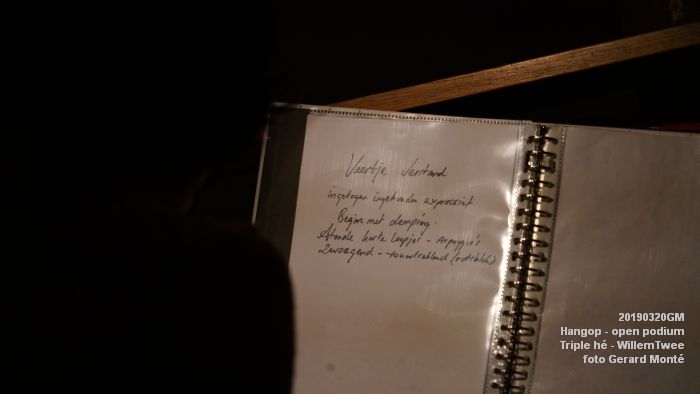 Veertje Verstand
ingetogen ingehouden expressief
Begin met demping.
korte loopjes - Arpeggio's
Zwoegend - touwtrekkend
20190320GM
Hangop - open podium
Triple hé - WillemTwee
foto Gerard Monté